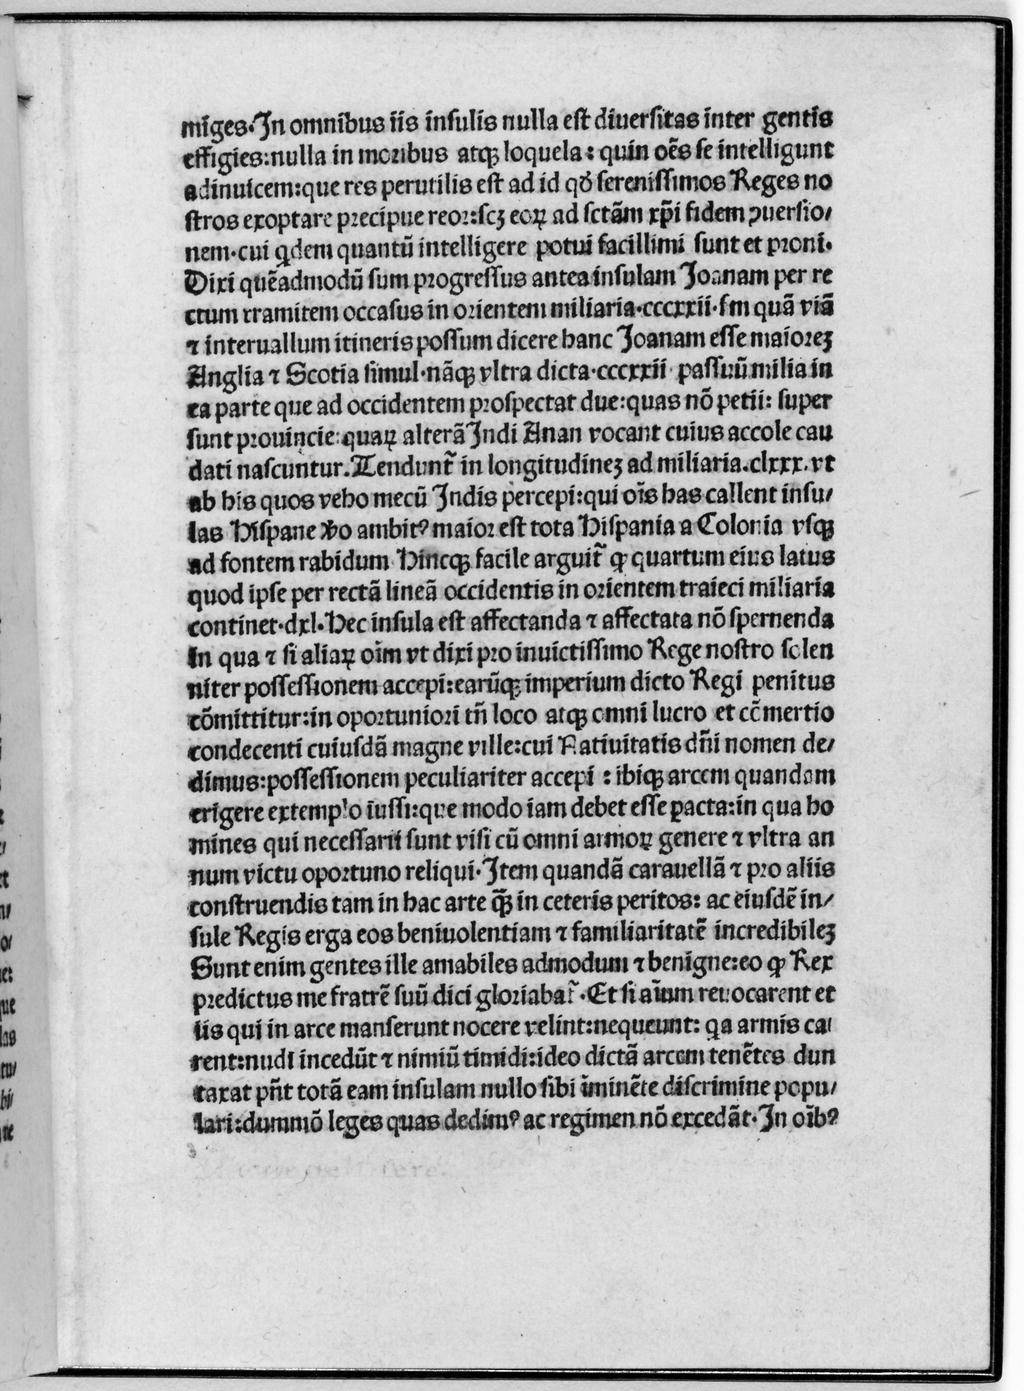 miges·In omnibus iis insulis nulla est diuersitas inter gentis
effigies:nulla in moribus atqꝫ loquela: quin oēs se intelligunt
adinuicem:que res perutilis est ad id qđ serenissimos Reges no
stros exoptare precipue reor:scꝫ eoꝝ ad sctām xp̄i fidem ꝯuersio/
nem·cui qͥdem quantū intelligere potui facillimi sunt et proni·
Dixi quēadmodū sum progressus antea insulam Joanam per re
ctum tramitem occasus in orientem miliaria·cccxxii·fm quā viā
⁊ interuallum itineris possum dicere hanc Joanam esse maioreꝫ
Anglia ⁊ Scotia simul·nāqꝫ vltra dicta·cccxxii· passuū milia in
ea parte que ad occidentem prospectat due:quas nō petii: super
sunt prouincie:quaꝝ alterā Indi Anan vocant cuius accole cau
dati nascuntur.Tendunt᷑ in longitudineꝫ ad miliaria.clxxx.vt
ab his quos veho mecū Indis percepi:qui oīs has callent insu/
las Hispane ꝟo ambitꝰ maior est tota Hispania a Colonia vsqꝫ
ad fontem rabidum Hincqꝫ facile arguit᷑ ꝙ quartum eius latus
quod ipse per rectā lineā occidentis in orientem traieci miliaria
continet·dxl·Hec insula est affectanda ⁊ affectata nō spernenda
In qua ⁊ si aliaꝝ oīm vt dixi pro inuictissimo Rege nostro solen
niter possessionem accepi:earūqꝫ imperium dicto Regi penitus
cōmittitur:in oportuniori tn̄ loco atqꝫ omni lucro et cōmertio
condecenti cuiusdā magne ville:cui Natiuitatis dn̄i nomen de/
dimus:possessionem peculiariter accepi : ibiqꝫ arcem quandam
erigere extemplo iussi:que modo iam debet esse pacta:in qua ho
mines qui necessarii sunt visi cū omni armoꝝ genere ⁊ vltra an
num victu oportuno reliqui·Item quandā carauellā ⁊ pro aliis
construendis tam in hac arte qꝫ̄ in ceteris peritos: ac eiusdē in/
sule Regis erga eos beniuolentiam ⁊ familiaritatē incredibileꝫ
Sunt enim gentes ille amabiles admodum ⁊ benigne:eo ꝙ Rex
predictus me fratrē suū dici gloriabat᷑·Et si aīum reuocarent et
iis qui in arce manserunt nocere velint:nequeunt: qͥa armis ca
rent:nudi incedūt ⁊ nimiū timidi:ideo dictā arcem tenētes dun
taxat pn̄t totā eam insulam nullo sibi īminēte discrimine popu/
lari:dummō leges quas dedimꝰ ac regimen nō excedāt·In oībꝰ